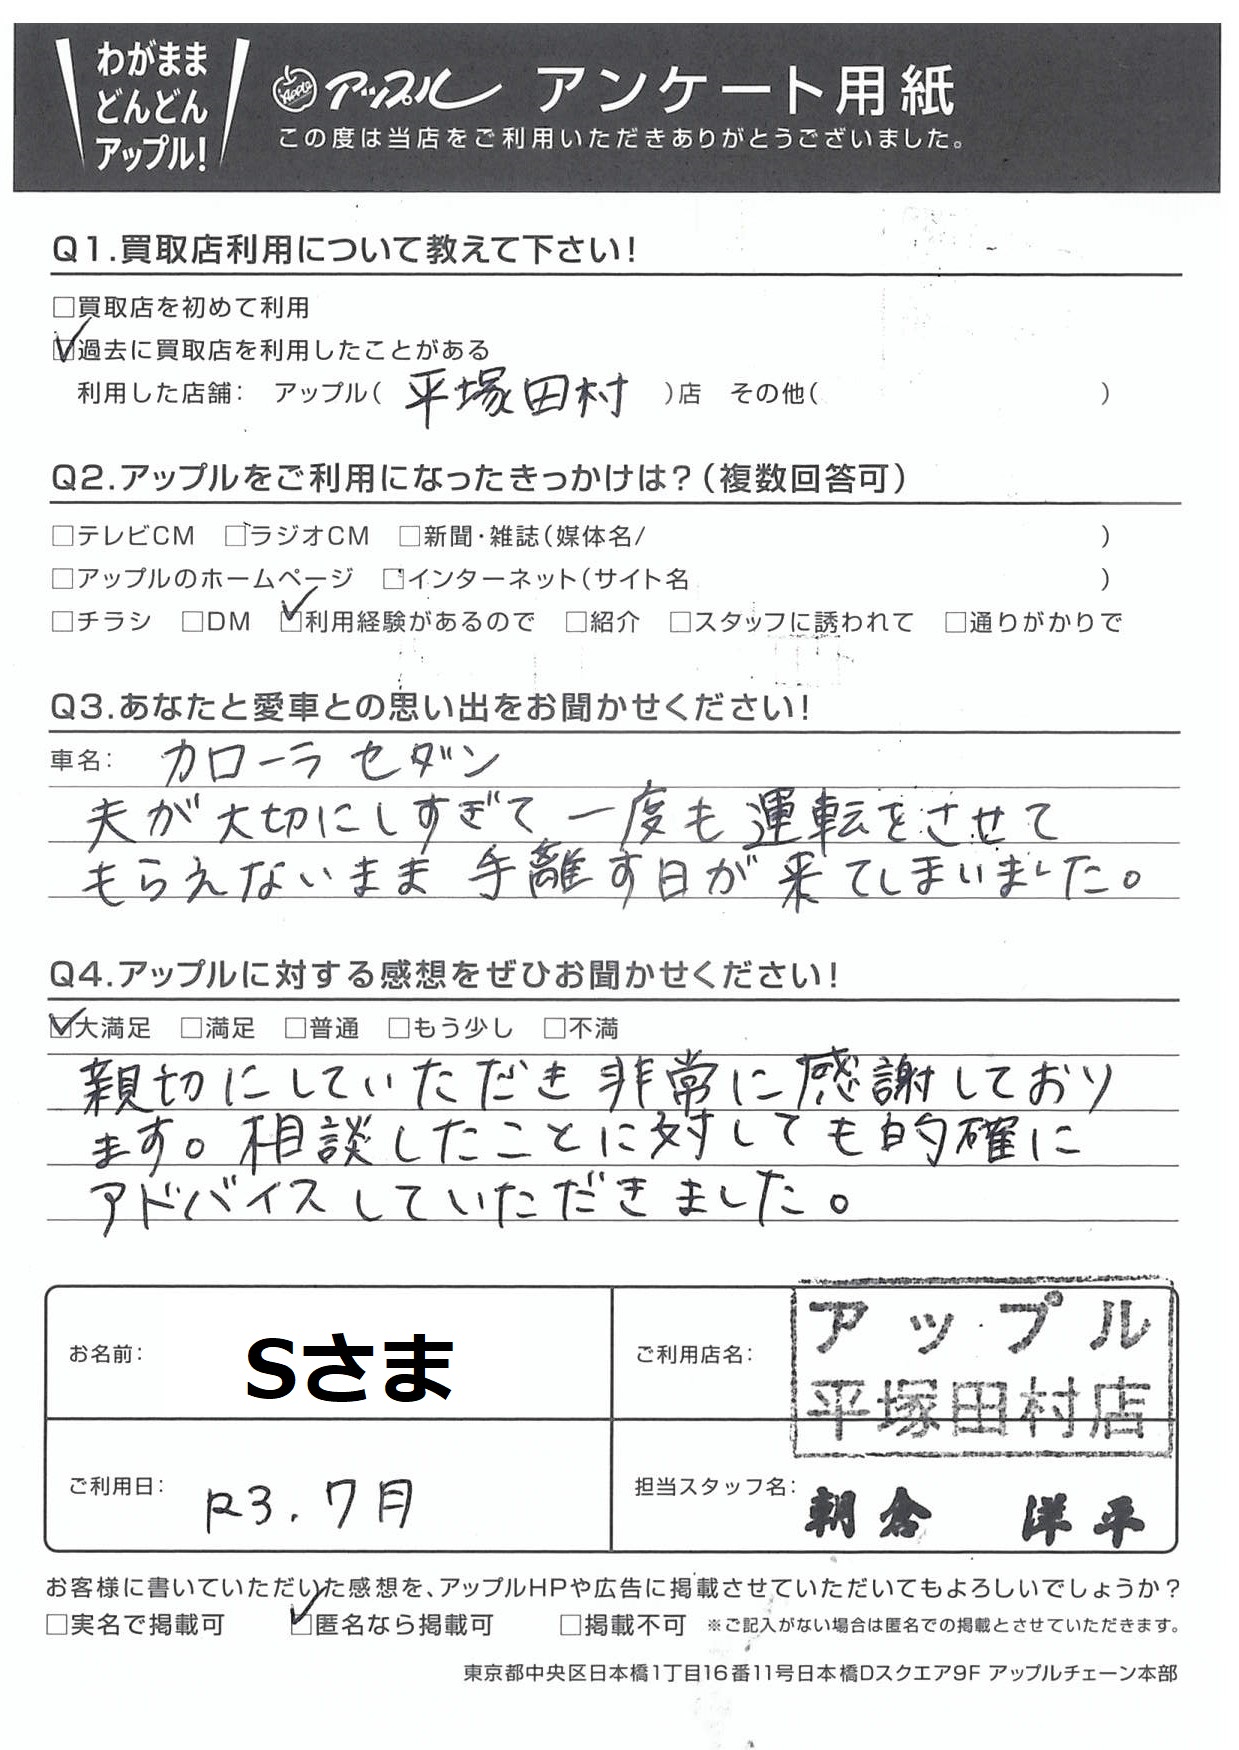 わがまま
どんどん
アップル!
Apple アップル アンケート用紙
この度は当店をご利用いただきありがとうございました。
Q1.買取店利用について教えて下さい!
□買取店を初めて利用
☑過去に買取店を利用したことがある
利用した店舗: アップル( 平塚田村 )店 その他( )
Q2.アップルをご利用になったきっかけは?(複数回答可)
□テレビCM □ラジオCM □新聞・雑誌(媒体名/ )
□アップルのホームページ □インターネット(サイト名 )
□チラシ □DM ☑利用経験があるので □紹介 □スタッフに誘われて □通りがかりで
Q3.あなたと愛車との思い出をお聞かせください!
車名: カローラ セダン
夫が大切にしすぎて一度も運転をさせて
もらえないまま手離す日が来てしまいました。
Q4.アップルに対する感想をぜひお聞かせください!
☑大満足 □満足 □普通 □もう少し □不満
親切にしていただき非常に感謝しており
ます。相談したことに対しても的確に
アドバイスしていただきました。
お名前: Sさま
ご利用店名: アップル
平塚田村店
ご利用日: R3.7月
担当スタッフ名: 朝倉 洋平
お客様に書いていただいた感想を、アップルHPや広告に掲載させていただいてもよろしいでしょうか?
□実名で掲載可 ☑匿名なら掲載可 □掲載不可 ※ご記入がない場合は匿名での掲載とさせていただきます。
東京都中央区日本橋1丁目16番11号日本橋Dスクエア9F アップルチェーン本部